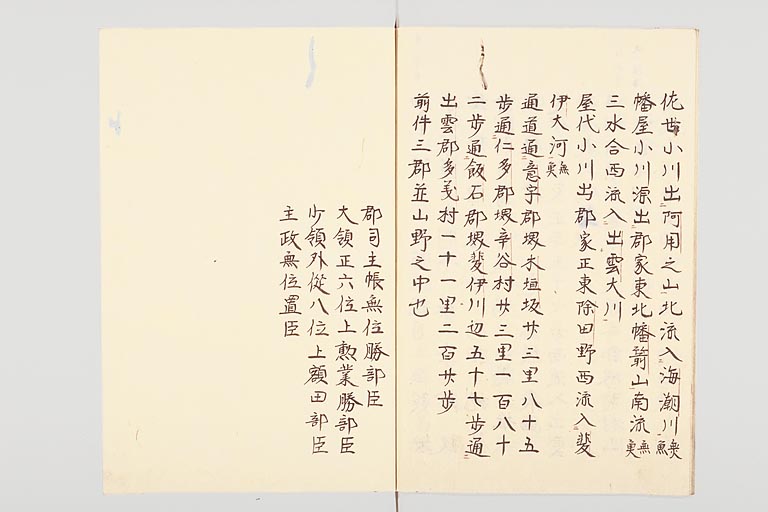 佐世小川出阿用之山北流入海潮川無魚
幡屋小川源出郡家東北幡箭山南流無魚
三水合西流入出雲大川
屋代小川出郡家正東除田野西流入斐
伊大河無魚
通道通意宇郡堺木垣坂廿三里八十五
歩通仁多郡堺辛谷村廿三里一百八十
二歩通飯石郡堺斐伊川辺五十七歩通
出雲郡多義村一十一里二百廿歩
前件三郡並山野之中也
郡司主帳無位勝部臣
大領正六位上勲業勝部臣
少領外従八位上額田部臣
主政無位置臣